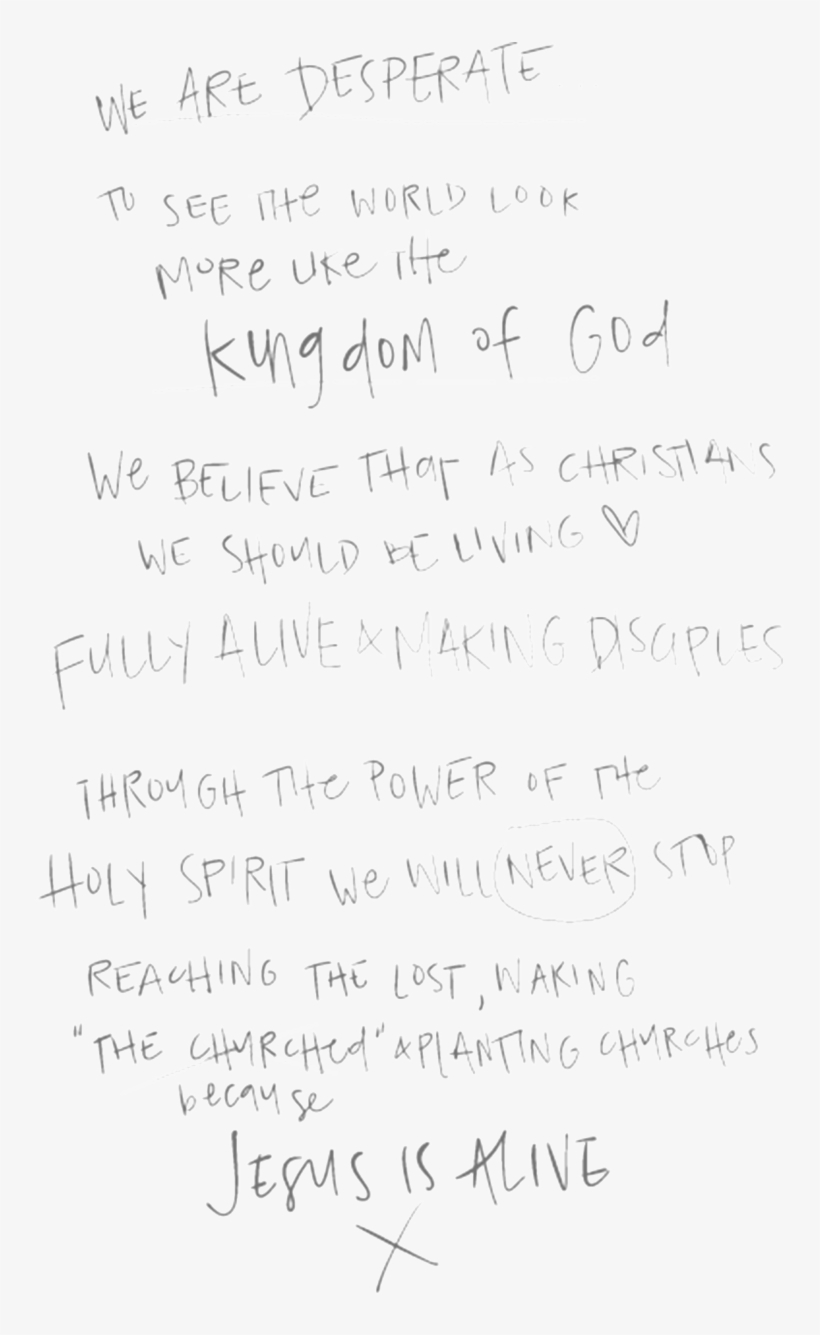 WE ARE DESPERATE
TO SEE THE WORLD LOOK
MORE LIKE THE
KINGDOM OF GOD
WE BELIEVE THAT AS CHRISTIANS
WE SHOULD BE LIVING ♡
FULLY ALIVE & MAKING DISCIPLES
THROUGH THE POWER OF THE
HOLY SPIRIT WE WILL NEVER STOP
REACHING THE LOST, WAKING
"THE CHURCHED" & PLANTING CHURCHES
because
JESUS IS ALIVE
X